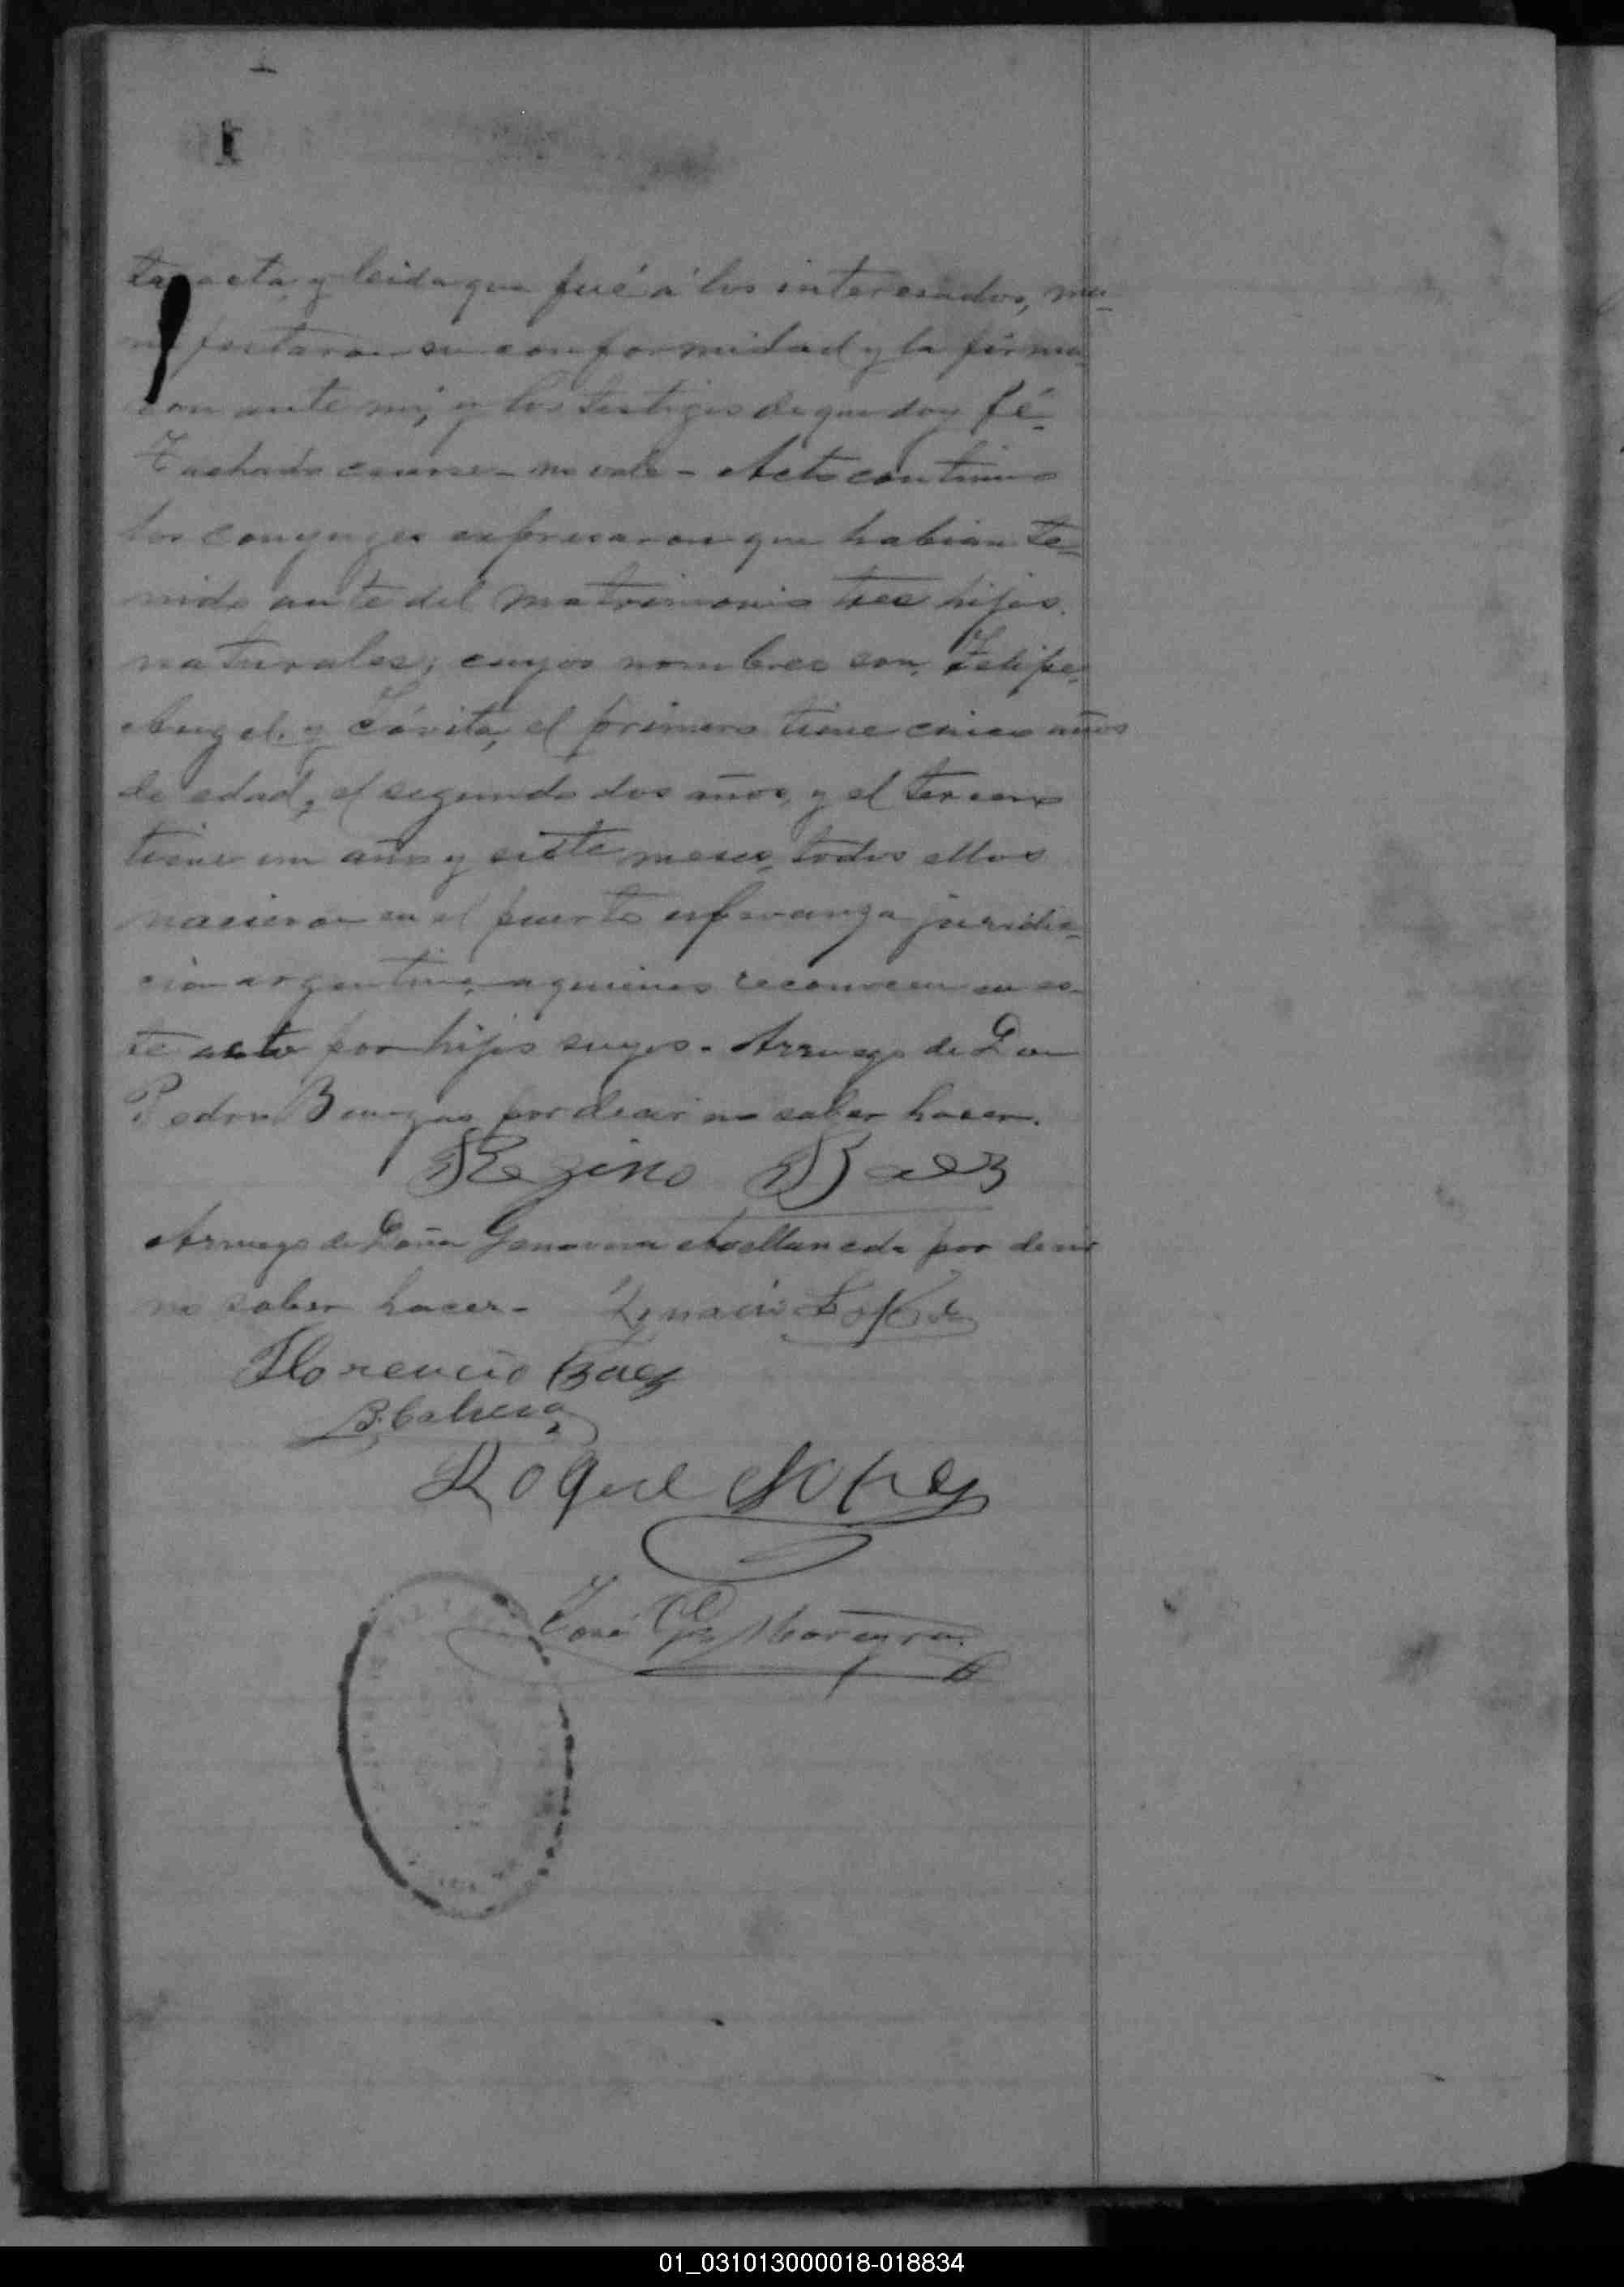 ta acta, y leida que fué á los interesados, ma-
nifestaron su conformidad y la firma-
ron ante mi, y los testigos de que doy fé.
Tachado - no vale - Acto continuo
los conyuges expresaron que habian te-
nido ante del matrimonio tres hijos
naturales; cuyos nombres son, Felipe,
Angel, y el primero tiene cinco años
de edad, el segundo dos años, y el tercero
tiene un año y siete meses, todos ellos
nacieron en el puerto esperanza juridic-
cion argentina, a quienes reconocen en es-
te acto por hijos suyos. Arruego de Don
Pedro Benegas por decir no saber hacer.
Regino Baez
Arruego de Doña Genoveva Avellaneda por decir
no saber hacer - Ignacio
Florencio Baez
B. Cabrera
Roque Lopez
José G. Moreyra
01_031013000018-018834